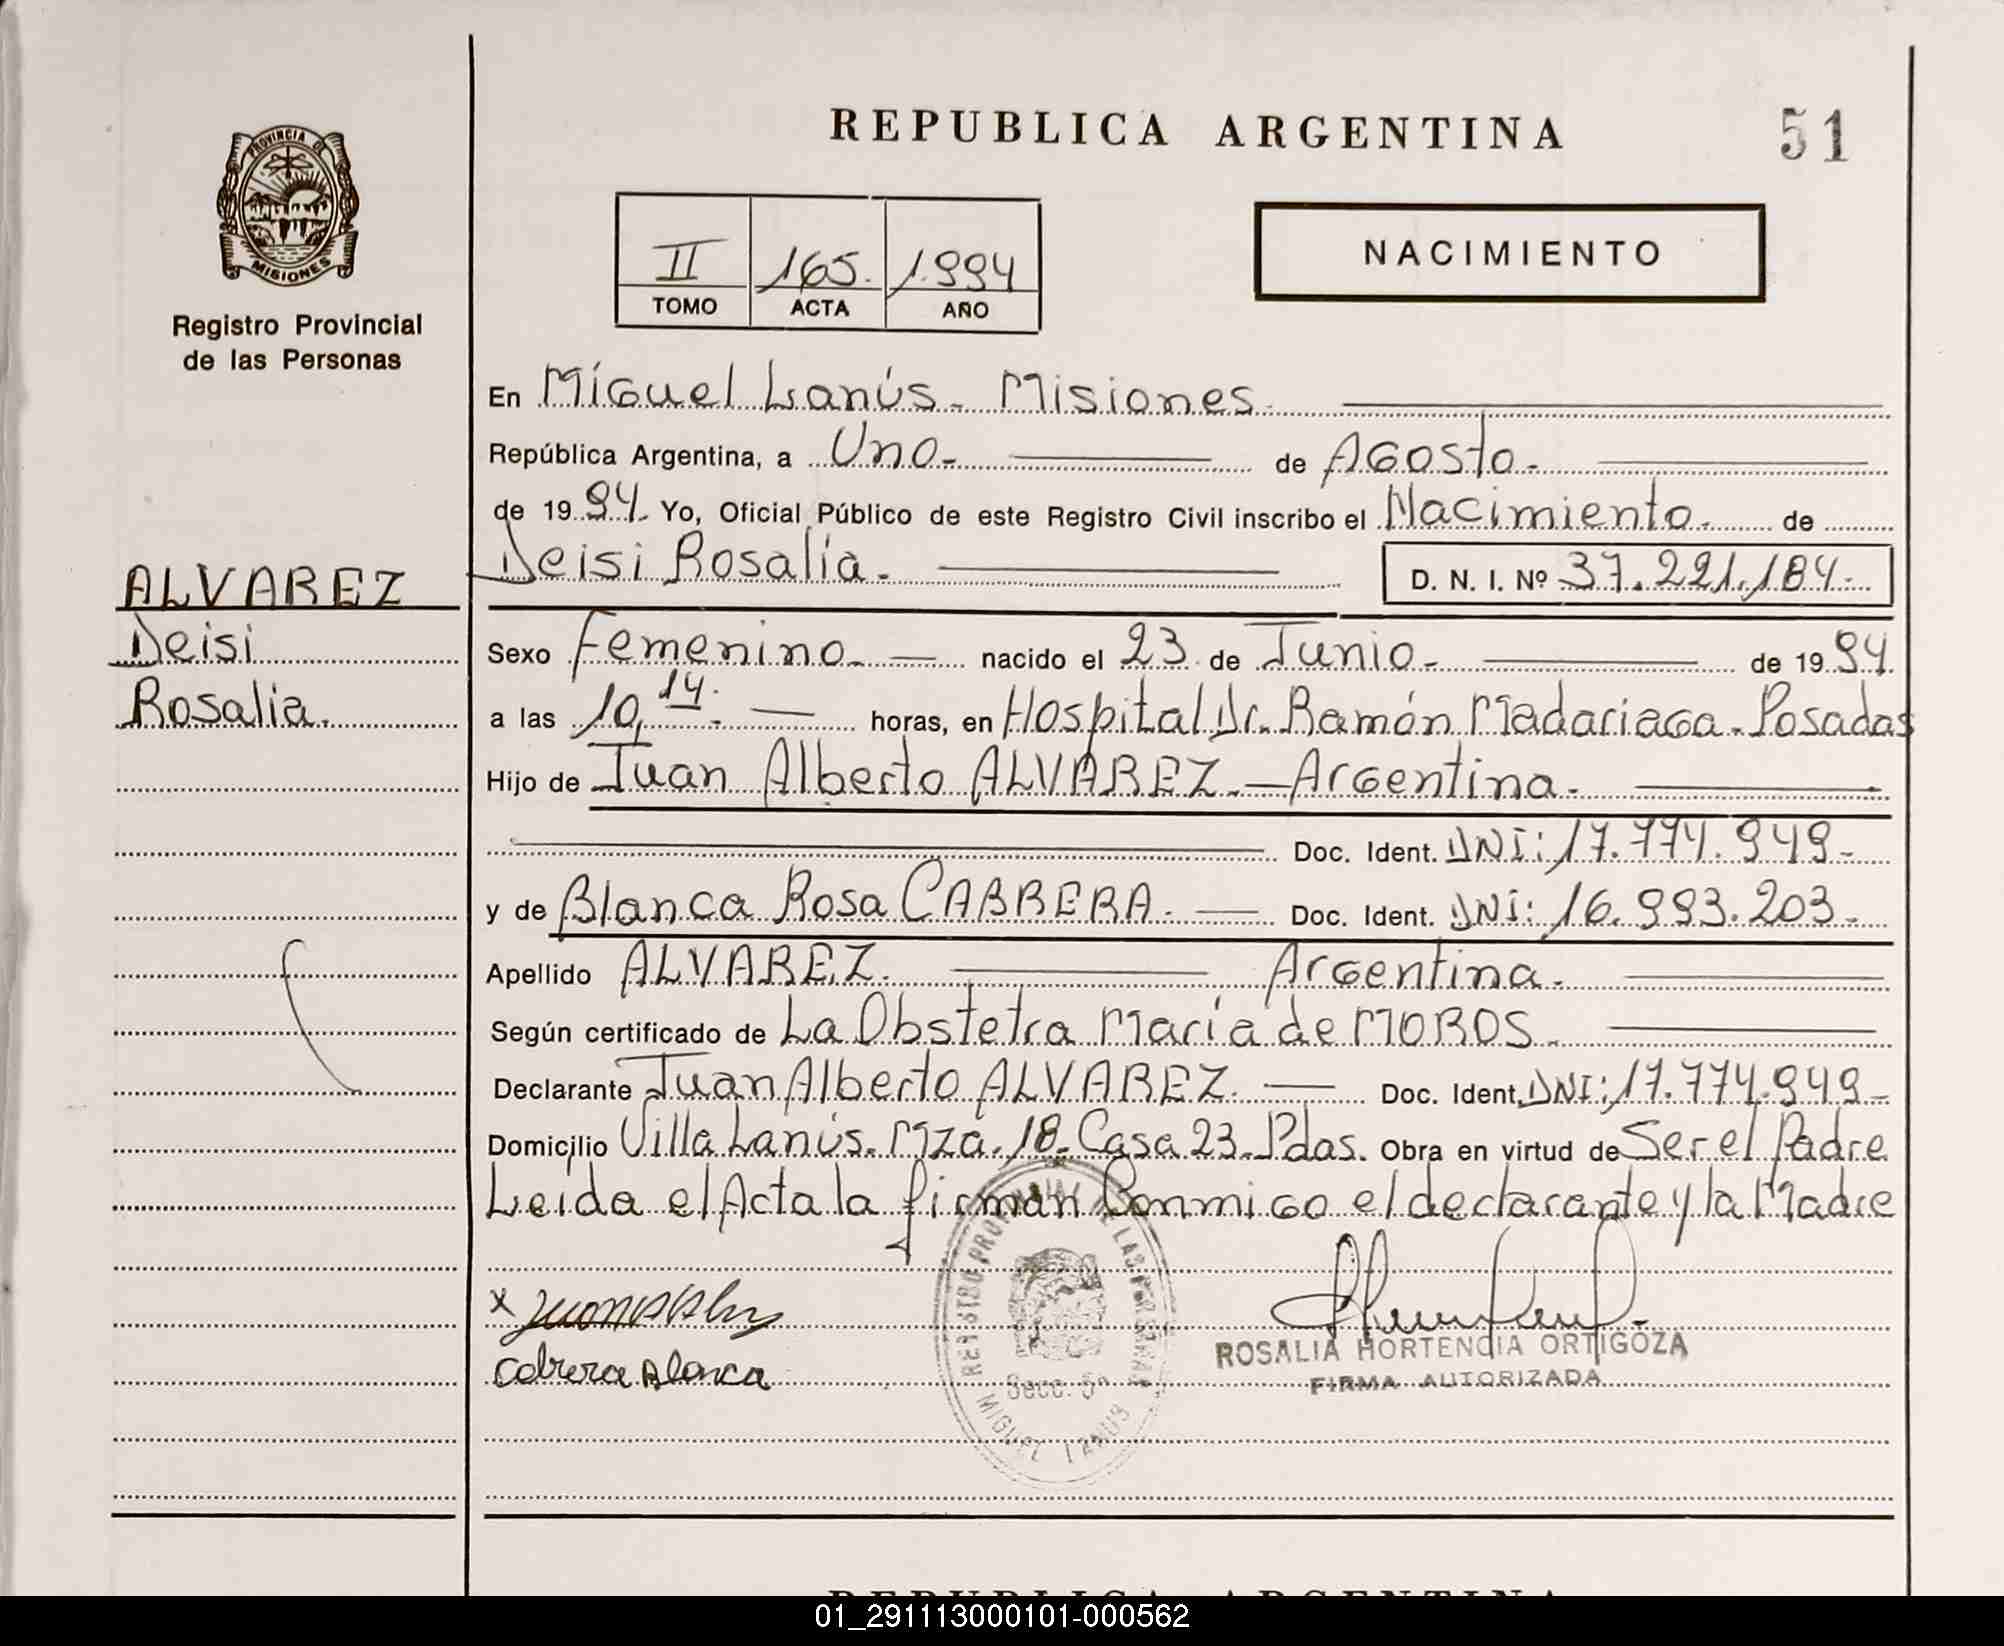 REPUBLICA ARGENTINA
51
PROVINCIA DE
MISIONES
Registro Provincial
de las Personas
II 165. 1.994
TOMO ACTA AÑO
NACIMIENTO
En Miguel Lanús - Misiones
República Argentina, a Uno - de Agosto -
de 1994. Yo, Oficial Público de este Registro Civil inscribo el Nacimiento. de
Deisi Rosalía. D. N. I. Nº 37.221.184.-
ALVAREZ
Deisi
Rosalia.
Sexo Femenino. nacido el 23 de Junio - de 1994.
a las 10,14. horas, en Hospital Dr. Ramón Madariaga - Posadas
Hijo de Juan Alberto ALVAREZ. - Argentina.
Doc. Ident. DNI: 17.774.949-
y de Blanca Rosa CABRERA. Doc. Ident. DNI: 16.993.203-
Apellido ALVAREZ. Argentina.
Según certificado de La Obstetra María de MOROS.
Declarante Juan Alberto ALVAREZ. Doc. Ident. DNI: 17.774.949-
Domicilio Villa Lanús. Mza. 18. Casa 23. Pdas. Obra en virtud de Ser el Padre
Leida el Acta la firman Conmigo el declarante y la Madre
x
Cabrera Blanca
REGISTRO PROVINCIAL DE LAS PERSONAS
Secc. 5ª
MIGUEL LANUS
ROSALIA HORTENCIA ORTIGOZA
FIRMA AUTORIZADA
REPUBLICA ARGENTINA
01_291113000101-000562